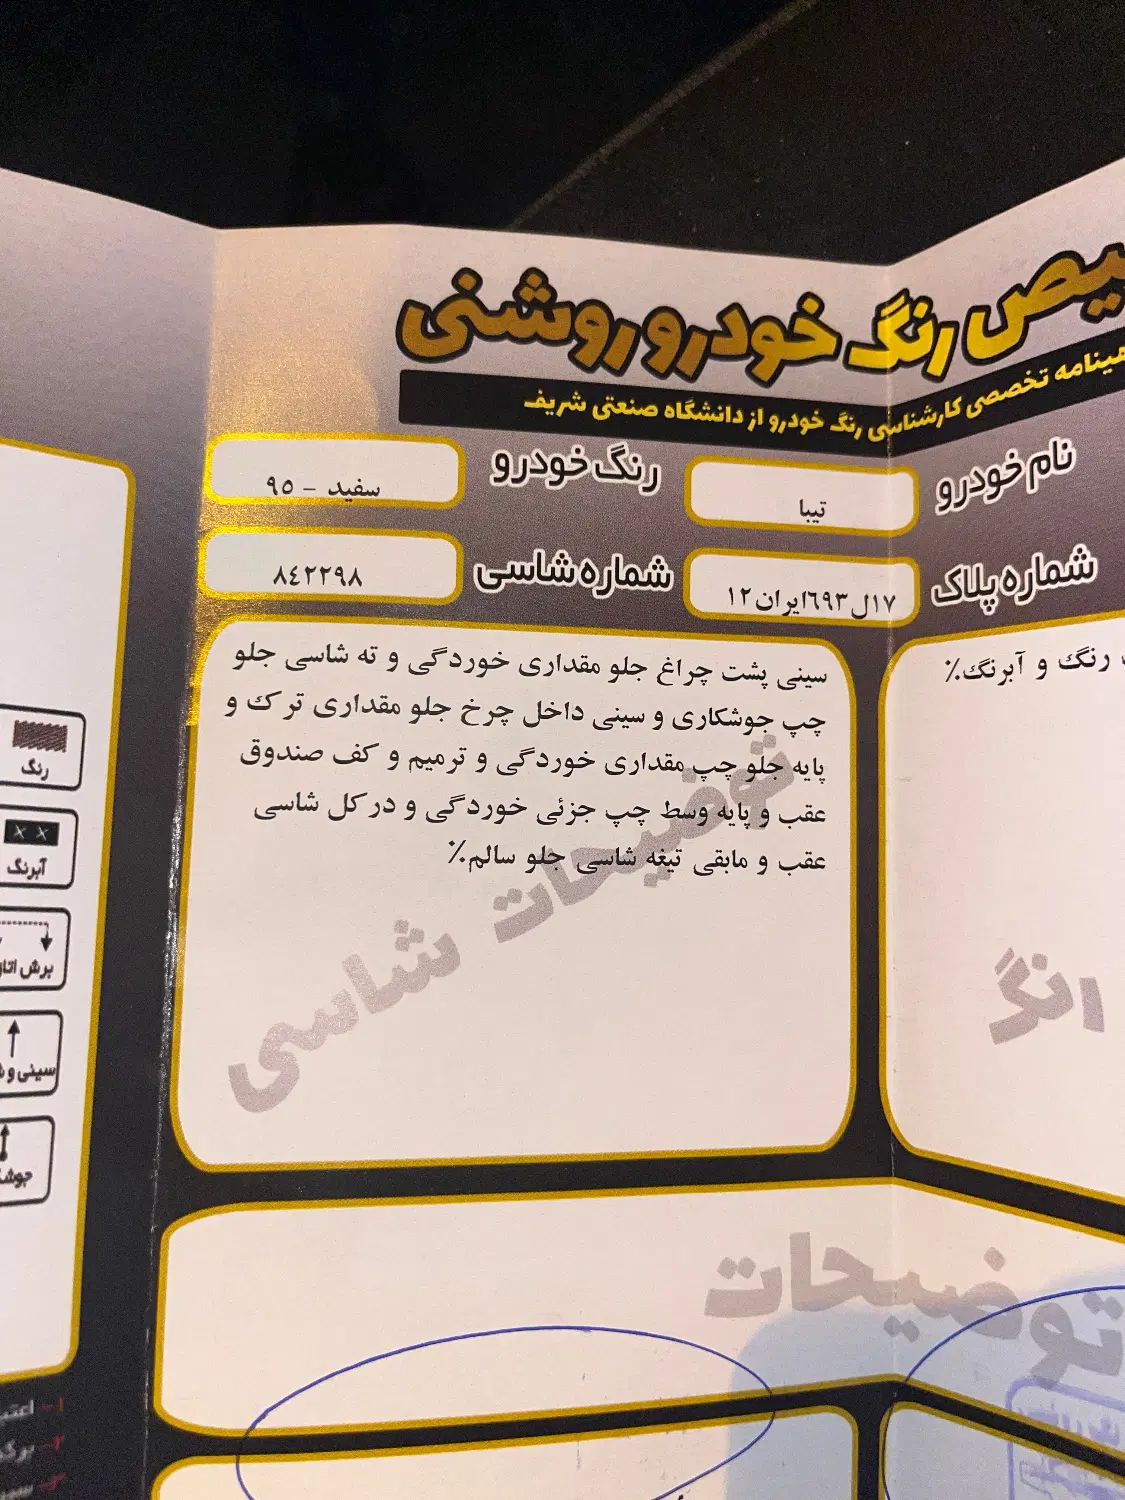 رنگ خودرو روشنی
تخصصی کارشناسی رنگ خودرو از دانشگاه صنعتی شریف
نام خودرو
تیبا
رنگ خودرو
سفید - ۹۵
شماره پلاک
۱۷ل۶۹۳ایران۱۲
شماره شاسی
۸۴۲۲۹۸
رنگ و آبرنگ٪
سینی پشت چراغ جلو مقداری خوردگی و ته شاسی جلو
چپ جوشکاری و سینی داخل چرخ جلو مقداری ترک و
پایه جلو چپ مقداری خوردگی و ترمیم و کف صندوق
عقب و پایه وسط چپ جزئی خوردگی و در کل شاسی
عقب و مابقی تیغه شاسی جلو سالم٪
توضیحات شاسی
رنگ
آبرنگ
برش
سینی و
توضیحات